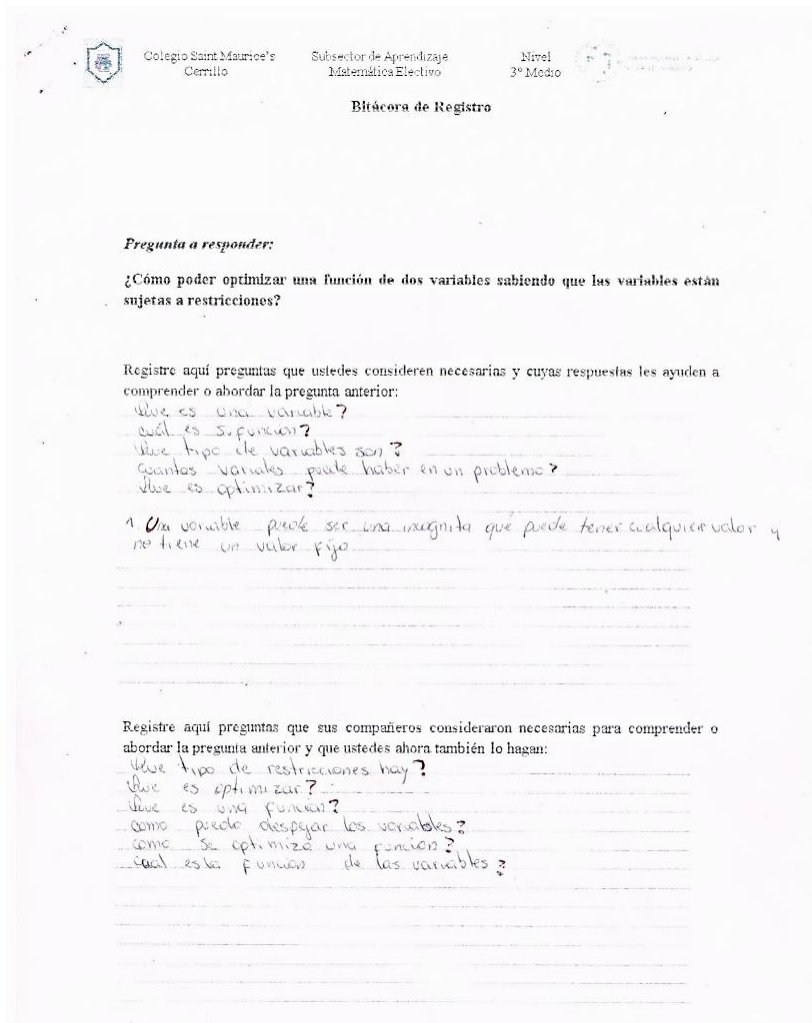 Colegio Saint Maurice's
Cerrillo
Subsector de Aprendizaje
Matemática Electivo
Nivel
3° Medio
Bitácora de Registro
Pregunta a responder:
¿Cómo poder optimizar una función de dos variables sabiendo que las variables están
sujetas a restricciones?
Registre aquí preguntas que ustedes consideren necesarias y cuyas respuestas les ayuden a
comprender o abordar la pregunta anterior:
Que es una variable?
cuál es su función?
Que tipo de variables son?
Cuantas variales puede haber en un problema?
Que es optimizar?
1. Una variable puede ser una incognita que puede tener cualquier valor y
no tiene un valor fijo
Registre aquí preguntas que sus compañeros consideraron necesarias para comprender o
abordar la pregunta anterior y que ustedes ahora también lo hagan:
Que tipo de restricciones hay?
Que es optimizar?
Que es una función?
como puedo despejar las variables?
como se optimiza una función?
Cual es la función de las variables?